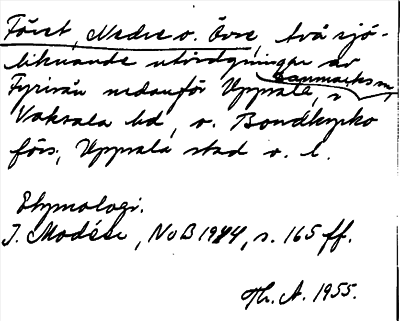 Föret, Nedre o. Övre, två sjö-
liknande utvidgningar av
Fyrisån nedanför Uppsala, i Danmarks sn,
Vaksala hd, o. Bondkyrko
förs., Uppsala stad o. l.
Etymologi.
I. Modéer, NoB 1944, s. 165 ff.
Hr. A. 1955.